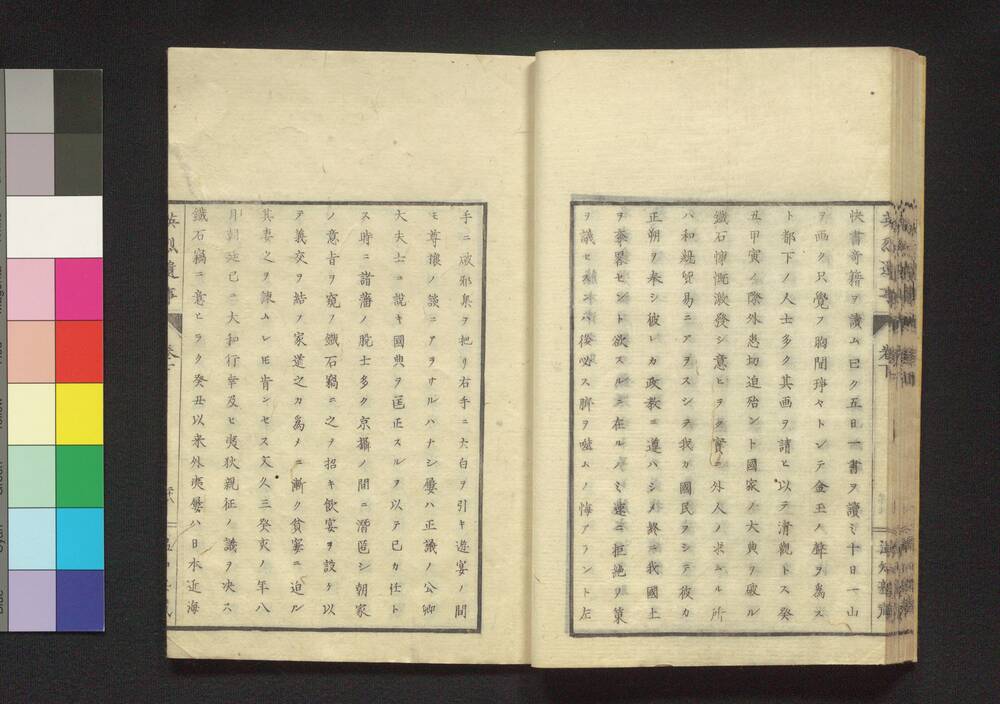 快書奇籍ヲ讀ム曰ク五日一書ヲ讀ミ十日一山
ヲ画ク只覺フ胸間琤々トシテ金玉ノ聲ヲ爲ス
ト都下ノ人士多ク其画ヲ請ヒ以テ清觀トス癸
丑甲寅ノ際外患切迫殆ント國家ノ大典ヲ破ル
鐵石慷慨激發シ意ヒラク實ニ外人ノ求ムル所
ハ和親貿易ニアラスシテ我カ國民ヲシテ彼カ
正朔ヲ奉シ彼レカ政教ニ遵ハシメ終ニ我國土
ヲ畧セント欲スルニ在ルノミ速ニ拒絶ヲ策
ヲ議セスンハ後必ス臍ヲ噬ムノ悔アラント左
手ニ破邪集ヲ把リ右手ニ大白ヲ引キ遊宴ノ間
モ尊攘ノ談ニアラサルハナシ屡ハ正議ノ公卿
大夫士ニ說キ國典ヲ匡正スルヲ以テ已カ任ト
ス時ニ諸藩ノ脫士多ク京攝ノ間ニ潛匿シ朝家
ノ意旨ヲ窺フ鐵石竊ニ之ヲ招キ飲宴ヲ設ケ以
テ義交ヲ結フ家道之カ爲メニ漸ク貧窶ニ迫ル
其妻之ヲ諫ムレ𪜈肯ンセス文久三癸亥ノ年八
月朝廷已ニ大和行幸及ヒ夷狄親征ノ議ヲ决ス
鐵石竊ニ意ヒラク癸丑以来外夷屡ハ日本近海